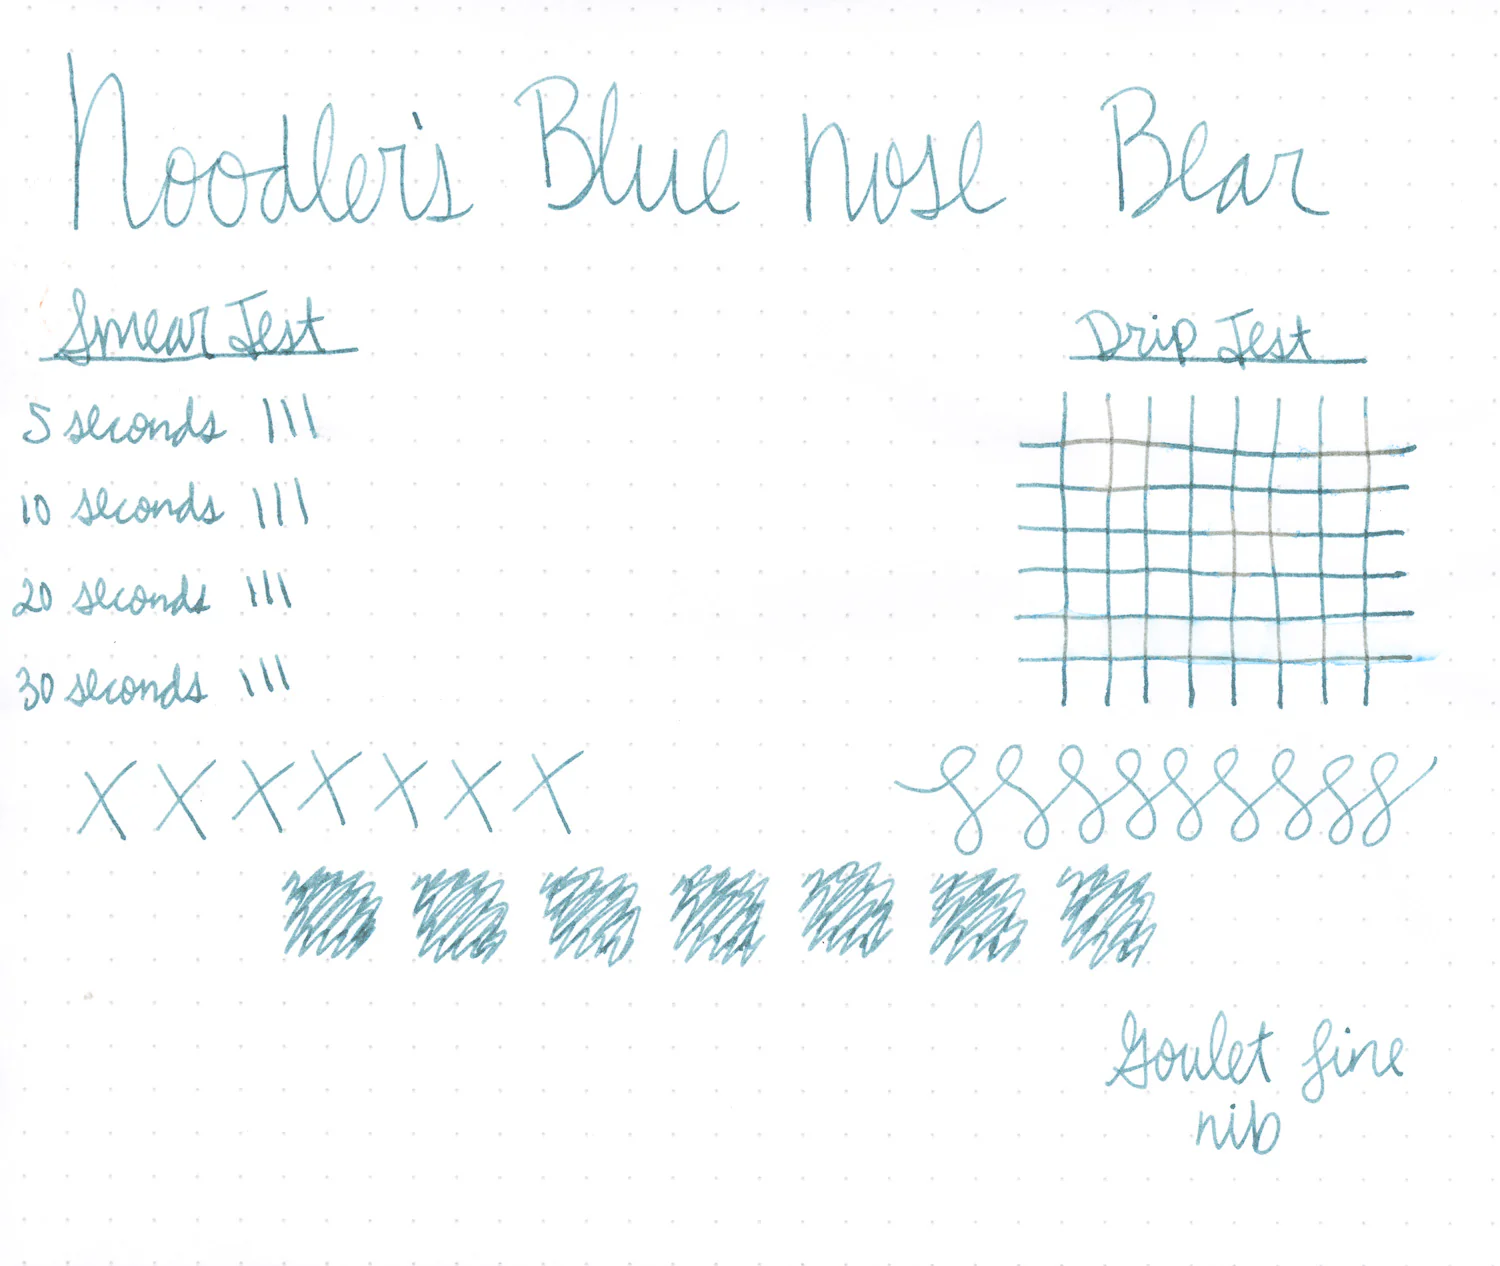 Noodler's Blue Nose Bear
Smear Test
5 seconds |||
10 seconds |||
20 seconds |||
30 seconds |||
Drip Test
X X X X X X X
Goulet fine
nib